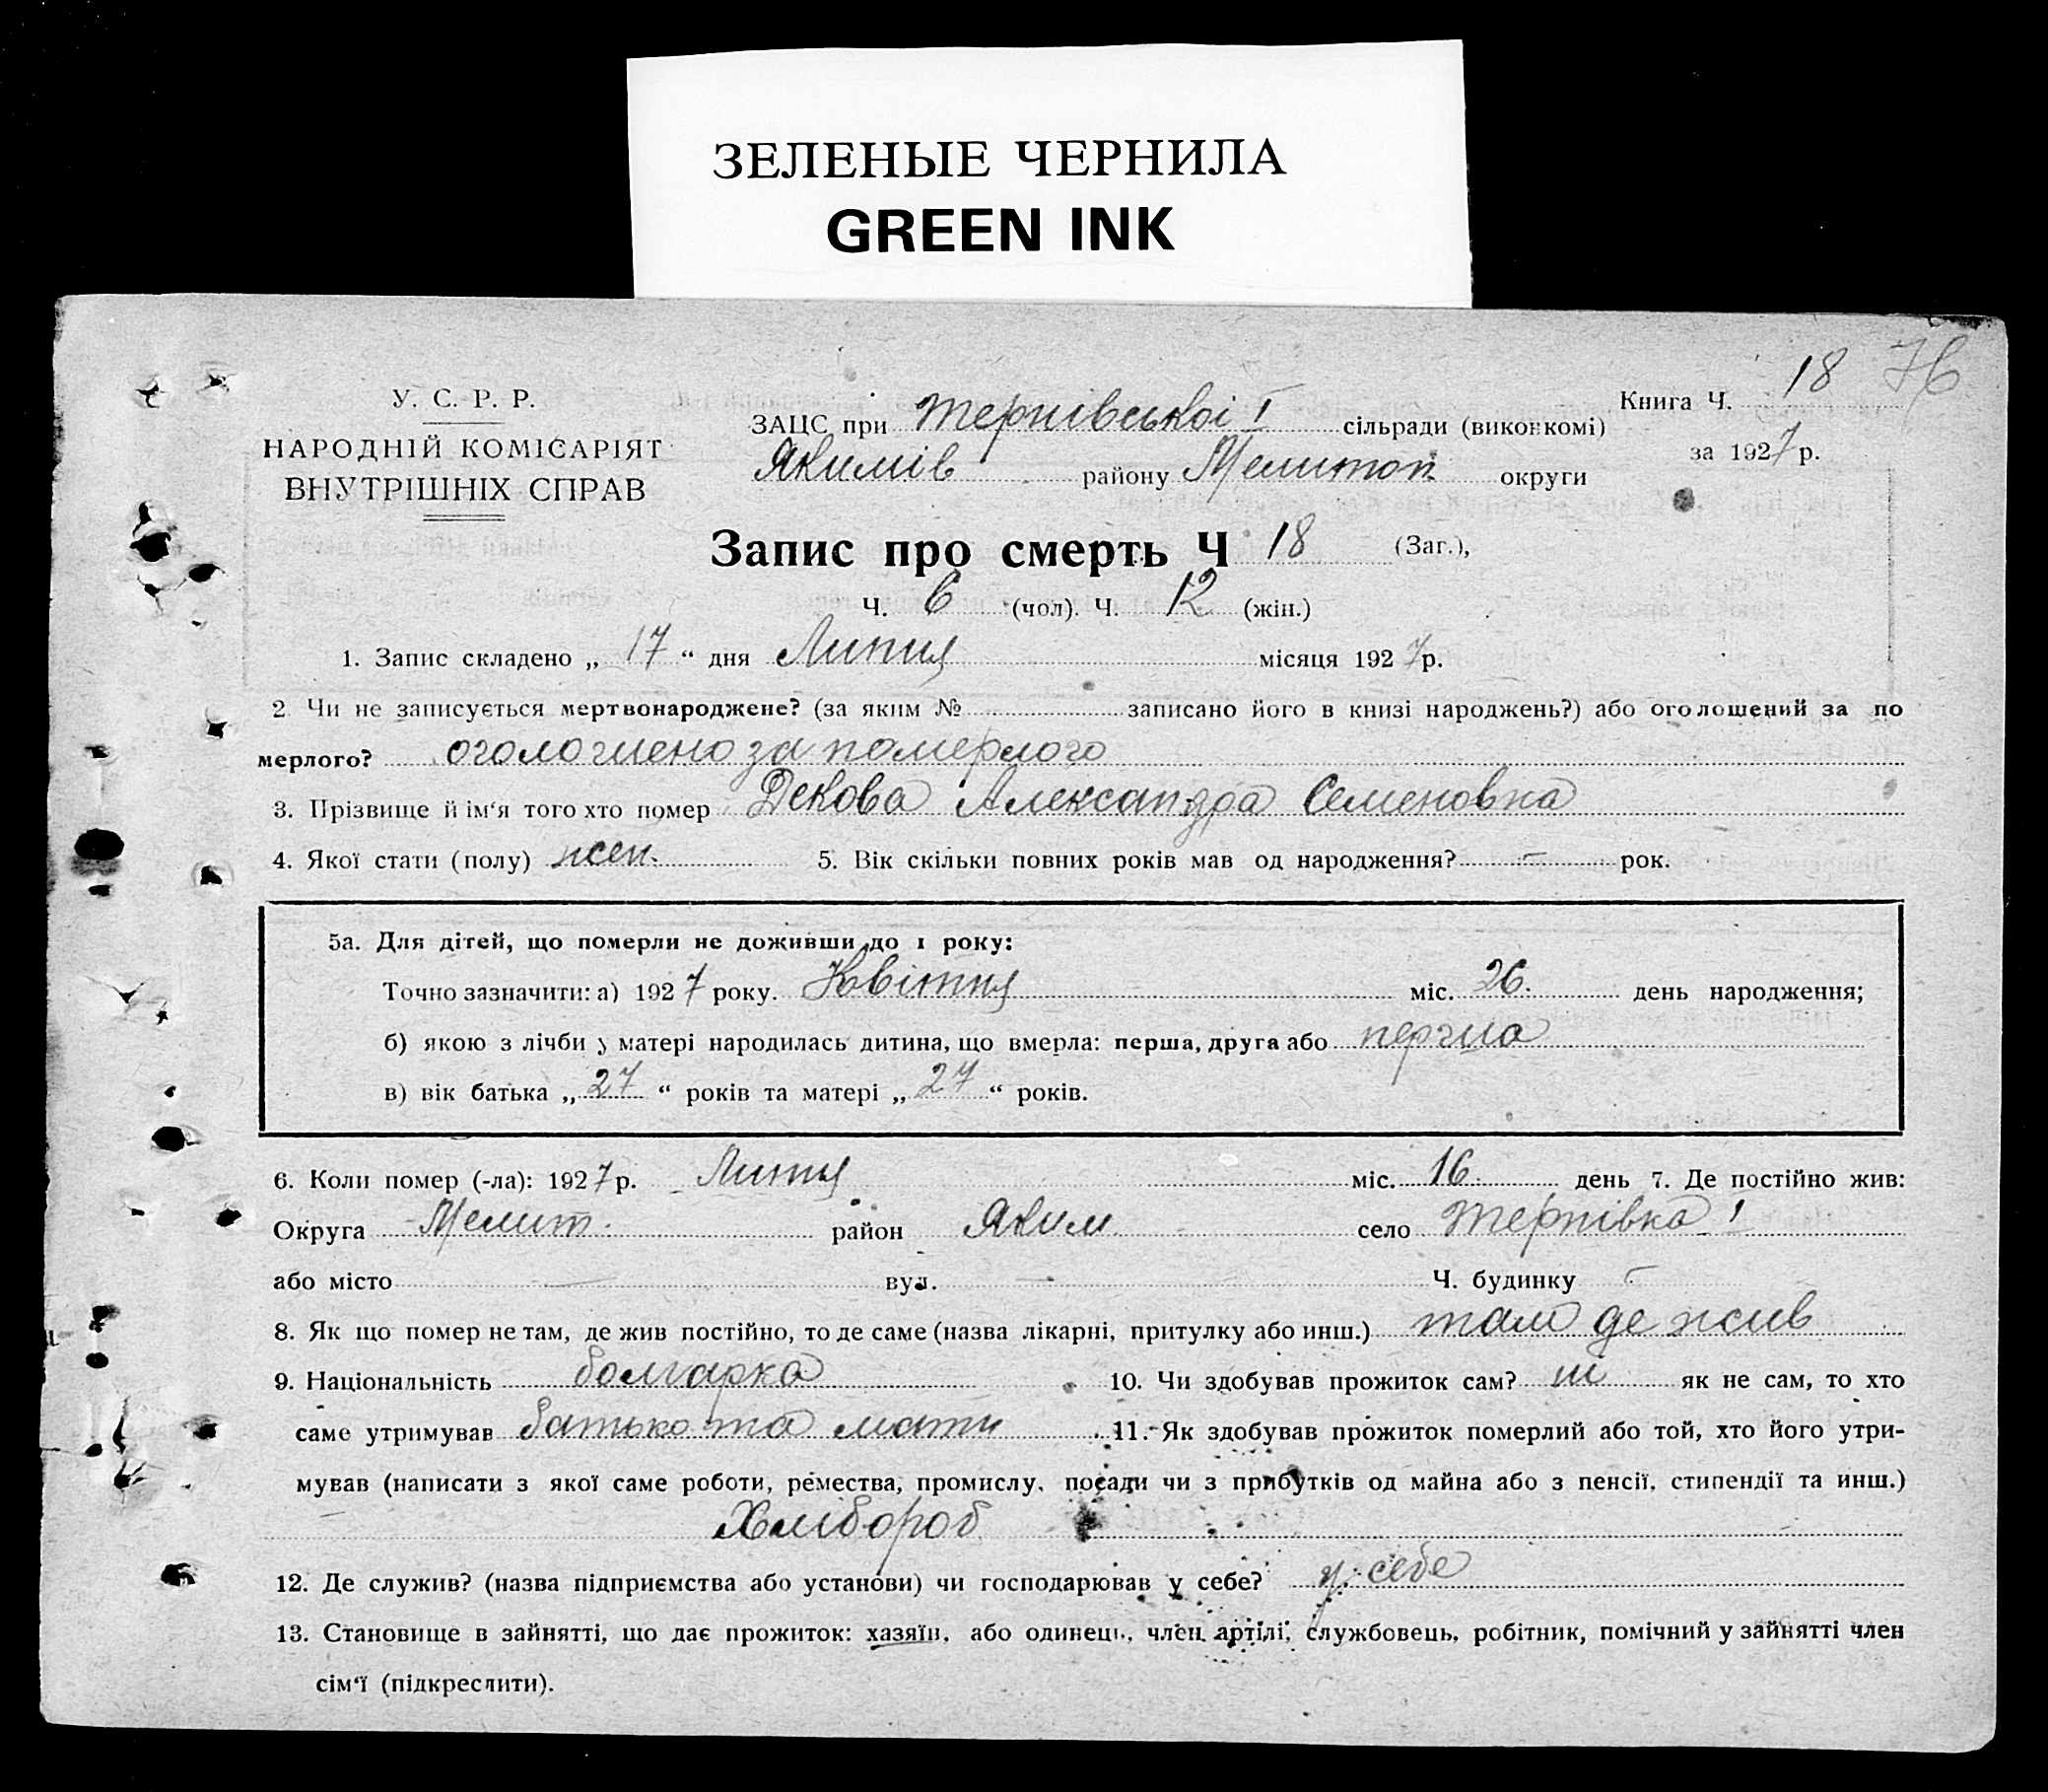 ЗЕЛЕНЫЕ ЧЕРНИЛА
GREEN INK
У. С. Р. Р.
НАРОДНІЙ КОМІСАРІЯТ
ВНУТРІШНІХ СПРАВ
ЗАЦС при Тернівської I сільради (виконкомі)
Якимів району Мелитоп. округи
Книга Ч. 18
за 1927 р.
Запис про смерть Ч 18 (Заг.),
Ч. 6 (чол). Ч. 12 (жін.)
1. Запис складено „ 17 “ дня Липня місяця 1927 р.
2 Чи не записується мертвонароджене? (за яким № записано його в книзі народжень?) або оголошений за по
мерлого? оголошено за померлого
3. Прізвище й ім‘я того хто помер Декова Александра Семеновна
4. Якої стати (полу) жен. 5. Вік скільки повних років мав од народження? – рок.
5а. Для дітей, що померли не доживши до 1 року:
Точно зазначити: а) 1927 року. Квітня міс. 26. день народження;
б) якою з лічби у матері народилась дитина, що вмерла: перша, друга або перша
в) вік батька „ 27 “ років та матері „ 27 “ років.
6. Коли помер (-ла): 1927 р. Липня міс. 16 день 7. Де постійно жив:
Округа Мелит. район Яким. село Тернівка I
або місто — вул. — Ч. будинку –
8. Як що помер не там, де жив постійно, то де саме (назва лікарні, притулку або инш.) там де жив
9. Національність болгарка 10. Чи здобував прожиток сам? ні як не сам, то хто
саме утримував батько та мати 11. Як здобував прожиток померлий або той, хто його утри-
мував (написати з якої саме роботи, ремества, промислу, посади чи з прибутків од майна або з пенсії, стипендії та инш.)
Хлібороб
12. Де служив? (назва підприємства або установи) чи господарював у себе? у себе
13. Становище в зайнятті, що дає прожиток: хазяїн, або одинець, член артілі, службовець, робітник, помічний у зайнятті член
сім‘ї (підкреслити).